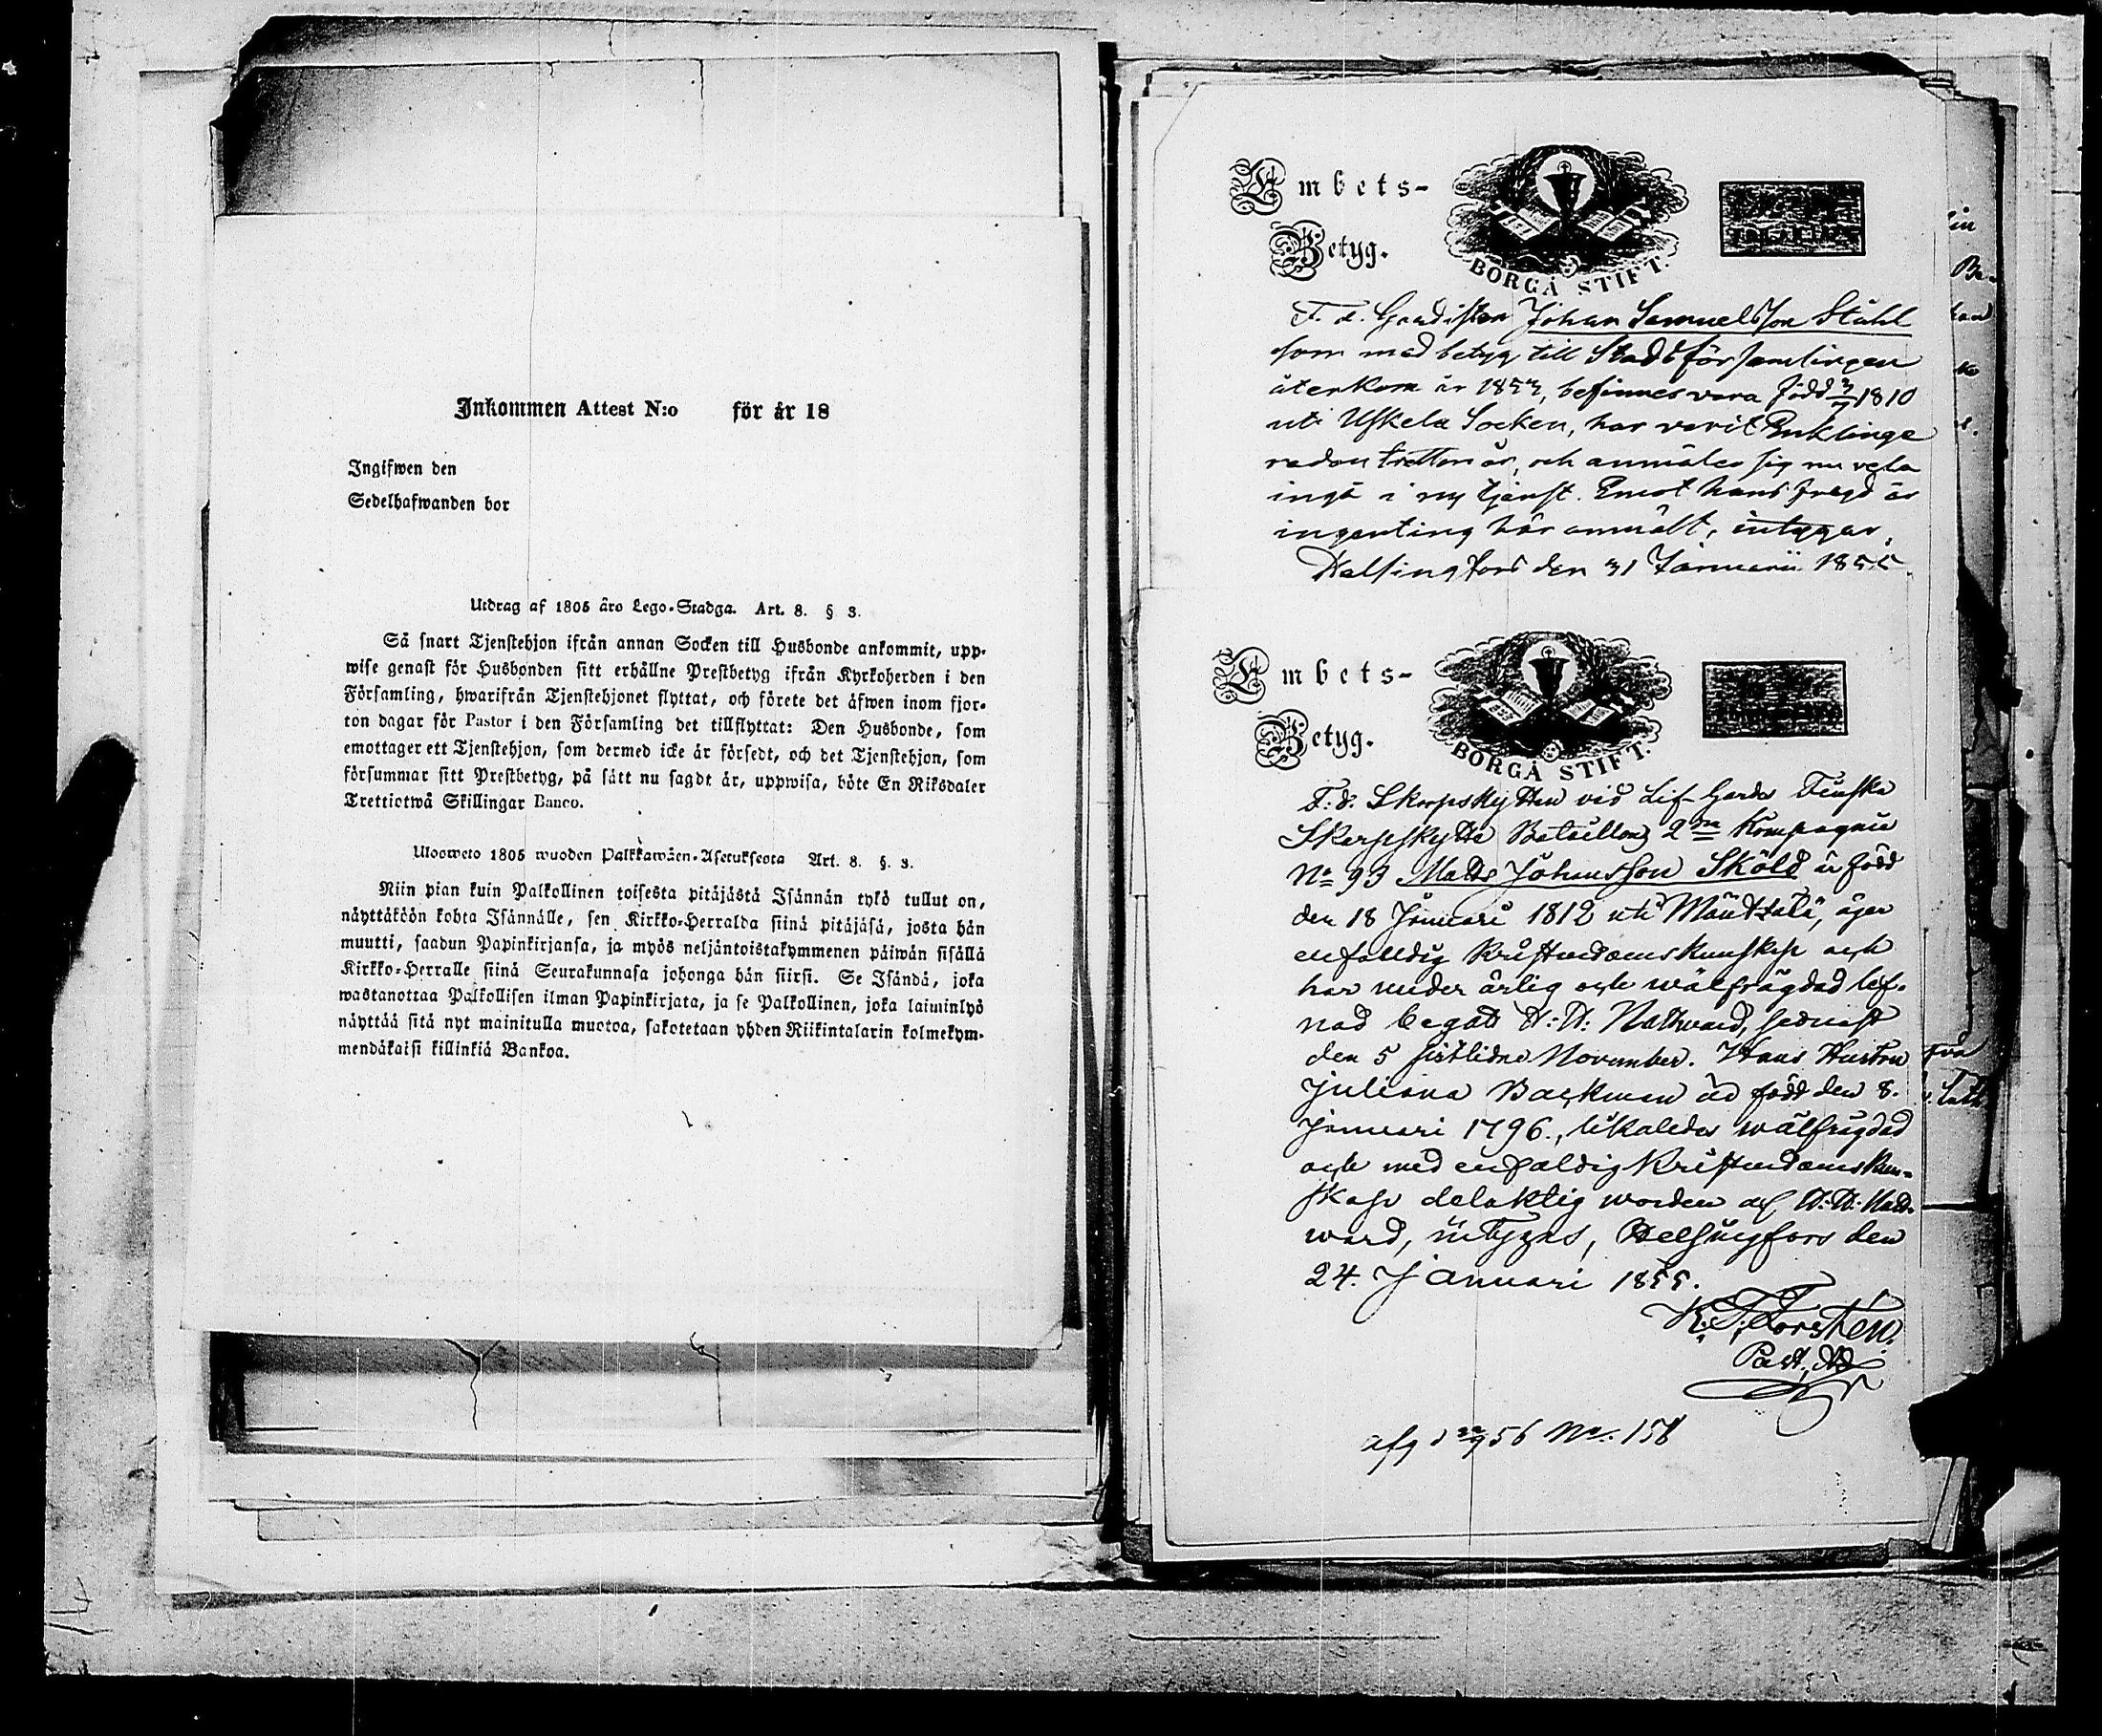 Inkommen Attest N:o för år 18
Ingifwen den
Sedelhafwanden bor
Utdrag af 1805 års Lego-Stadga. Art. 8. § 3.
Så snart Tjenstehjon ifrån annan Socken till Husbonde ankommit, upp-
wise genast för Husbonden sitt erhållne Prestbetyg ifrån Kyrkoherden i den
Församling, hwarifrån Tjenstehjonet flyttat, och förete det äfwen inom fjor-
ton dagar för Pastor i den Församling det tillflyttat: Den Husbonde, som
emottager ett Tjenstehjon, som dermed icke är försedt, och det Tjenstehjon, som
försummar sitt Prestbetyg, på sätt nu sagdt är, uppwisa, böte En Riksdaler
Trettiotwå Skillingar Banco.
Ulooweto 1805 wuoden Palkkawäen-Asetuksesta Art. 8. §. 3.
Niin pian kuin Palkollinen toisesta pitäjästä Isännän tykö tullut on,
näyttäköön kohta Isännälle, sen Kirkko-Herralda siinä pitäjäsä, josta hän
muutti, saadun Papinkirjansa, ja myös neljäntoistakymmenen päiwän sisällä
Kirkko-Herralle siinä Seurakunnasa johonga hän siirsi. Se Isändä, joka
wastanottaa Palkollisen ilman Papinkirjata, ja se Palkollinen, joka laiminlyö
näyttää sitä nyt mainitulla muotoa, sakotetaan yhden Riikintalarin kolmekym-
mendäkaksi killinkiä Bankoa.
Embets-
Betyg.
BORGÅ STIFT.
F. d. Gardisten Johan Samuelsson Ståhl
som med betyg till Stadsförsamlingen
återkom år 1853, befinnes vara född 3/7 1810
uti Uskela Socken, har varit Enkling
redan tretton år, och anmäler sig nu vela
ingå i ny tjenst. Emot hans frägd är
ingenting här anmält, intygar,
Helsingfors den 31 Januarii 1855
Embets-
Betyg.
BORGÅ STIFT.
F:d. Skarpskytten vid Lif-Gardes Finska
Skarpskytte Bataillon 2ra Kompagnie
No 93 Matts Johansson Sköld är född
den 18 Januari 1812 uti Mäntsälä, äger
enfaldig Kristendomskunskap och
har under ärlig och wälfrägdad lef-
nad begått H:H: Nattward, sednast
den 5 sistlidne November. Hans Hustru
Juliana Backman är född den 8.
Januari 1796., likaledes wälfrägdad
och med enfaldig Kristendomskun-
skap delaktig worden af H:H: Natt-
ward, intygas, Helsingfors den
24. Januari 1855.
K. F. Forstén.
Past. Adj
afg d 56 No. 158